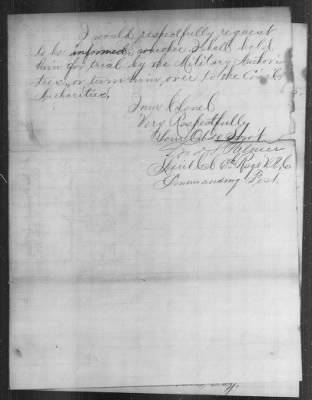 I would respectfully request
to be informed whether I shall hold
him for trial by the Military Authori
ties, or turn him over to the Civil
Authorities.
I am Colonel
Very Respectfully
Your Obt Servt
Palmer
Lieut Col 6th Regt V.R.C
Commanding Post.